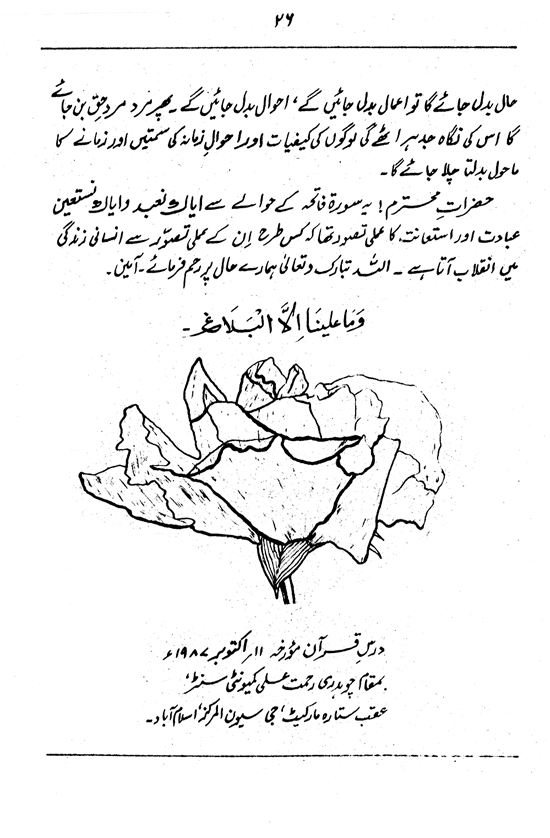 ۲۶
حال بدل جائے گا تو اعمال بدل جائیں گے، احوال بدل جائیں گے۔ پھر مرد مردِ حق بن جائے
گا اس کی نگاہ جدھر اٹھے گی لوگوں کی کیفیات اور احوالِ زمانہ کی سمتیں اور زمانے کا
ماحول بدلتا چلا جائے گا۔
حضراتِ محترم! یہ سورۃ فاتحہ کے حوالے سے ایاك نعبد وایاك نستعین
عبادت اور استعانت، کا عملی تصور تھا کہ کس طرح اِن کے عملی تصوّر سے انسانی زندگی
میں انقلاب آتا ہے ۔ اللہ تبارک و تعالیٰ ہمارے حال پر رحم فرمائے۔ آمین۔
وَمَا علینا اِلَّا الْبَلَاغ ۔
درسِ قرآن مؤرخہ ۱۱، اکتوبر ۱۹۸۷ء
بمقام چوہدری رحمت علی کمیونٹی سنٹر،
عقب ستارہ مارکیٹ، جی سیون المرکز، اسلام آباد۔